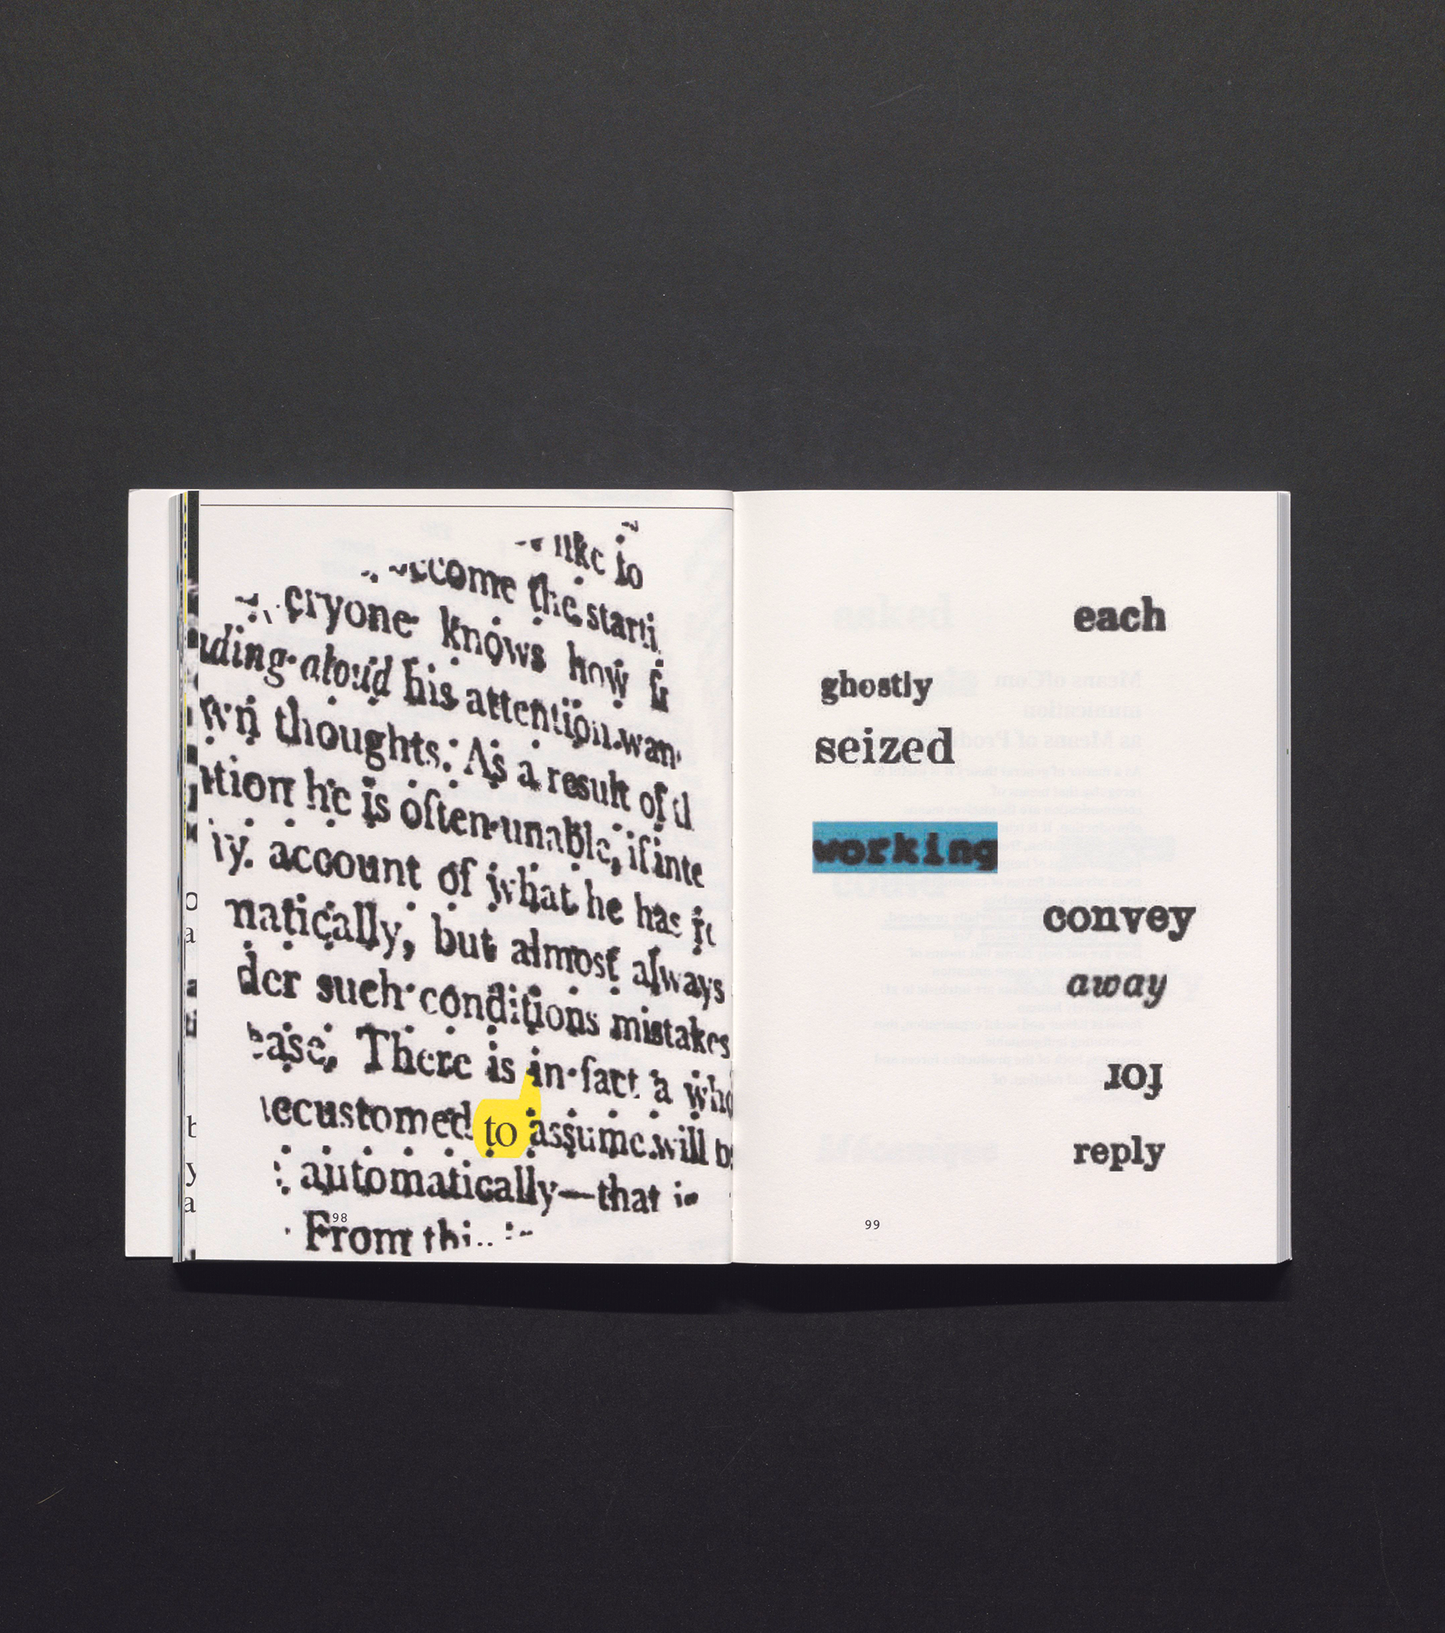 like to
come the starti
eryone knows how fr
ding aloud his attention wan
wn thoughts. As a result of th
tion he is often unable, if inte
account of what he has
matically, but almost always
der such conditions mistakes
ease. There is in fact a who
accustomed to assume will b
automatically—that
From
98
each
ghostly
seized
working
convey
away
for
reply
99
o
a
b
y
a